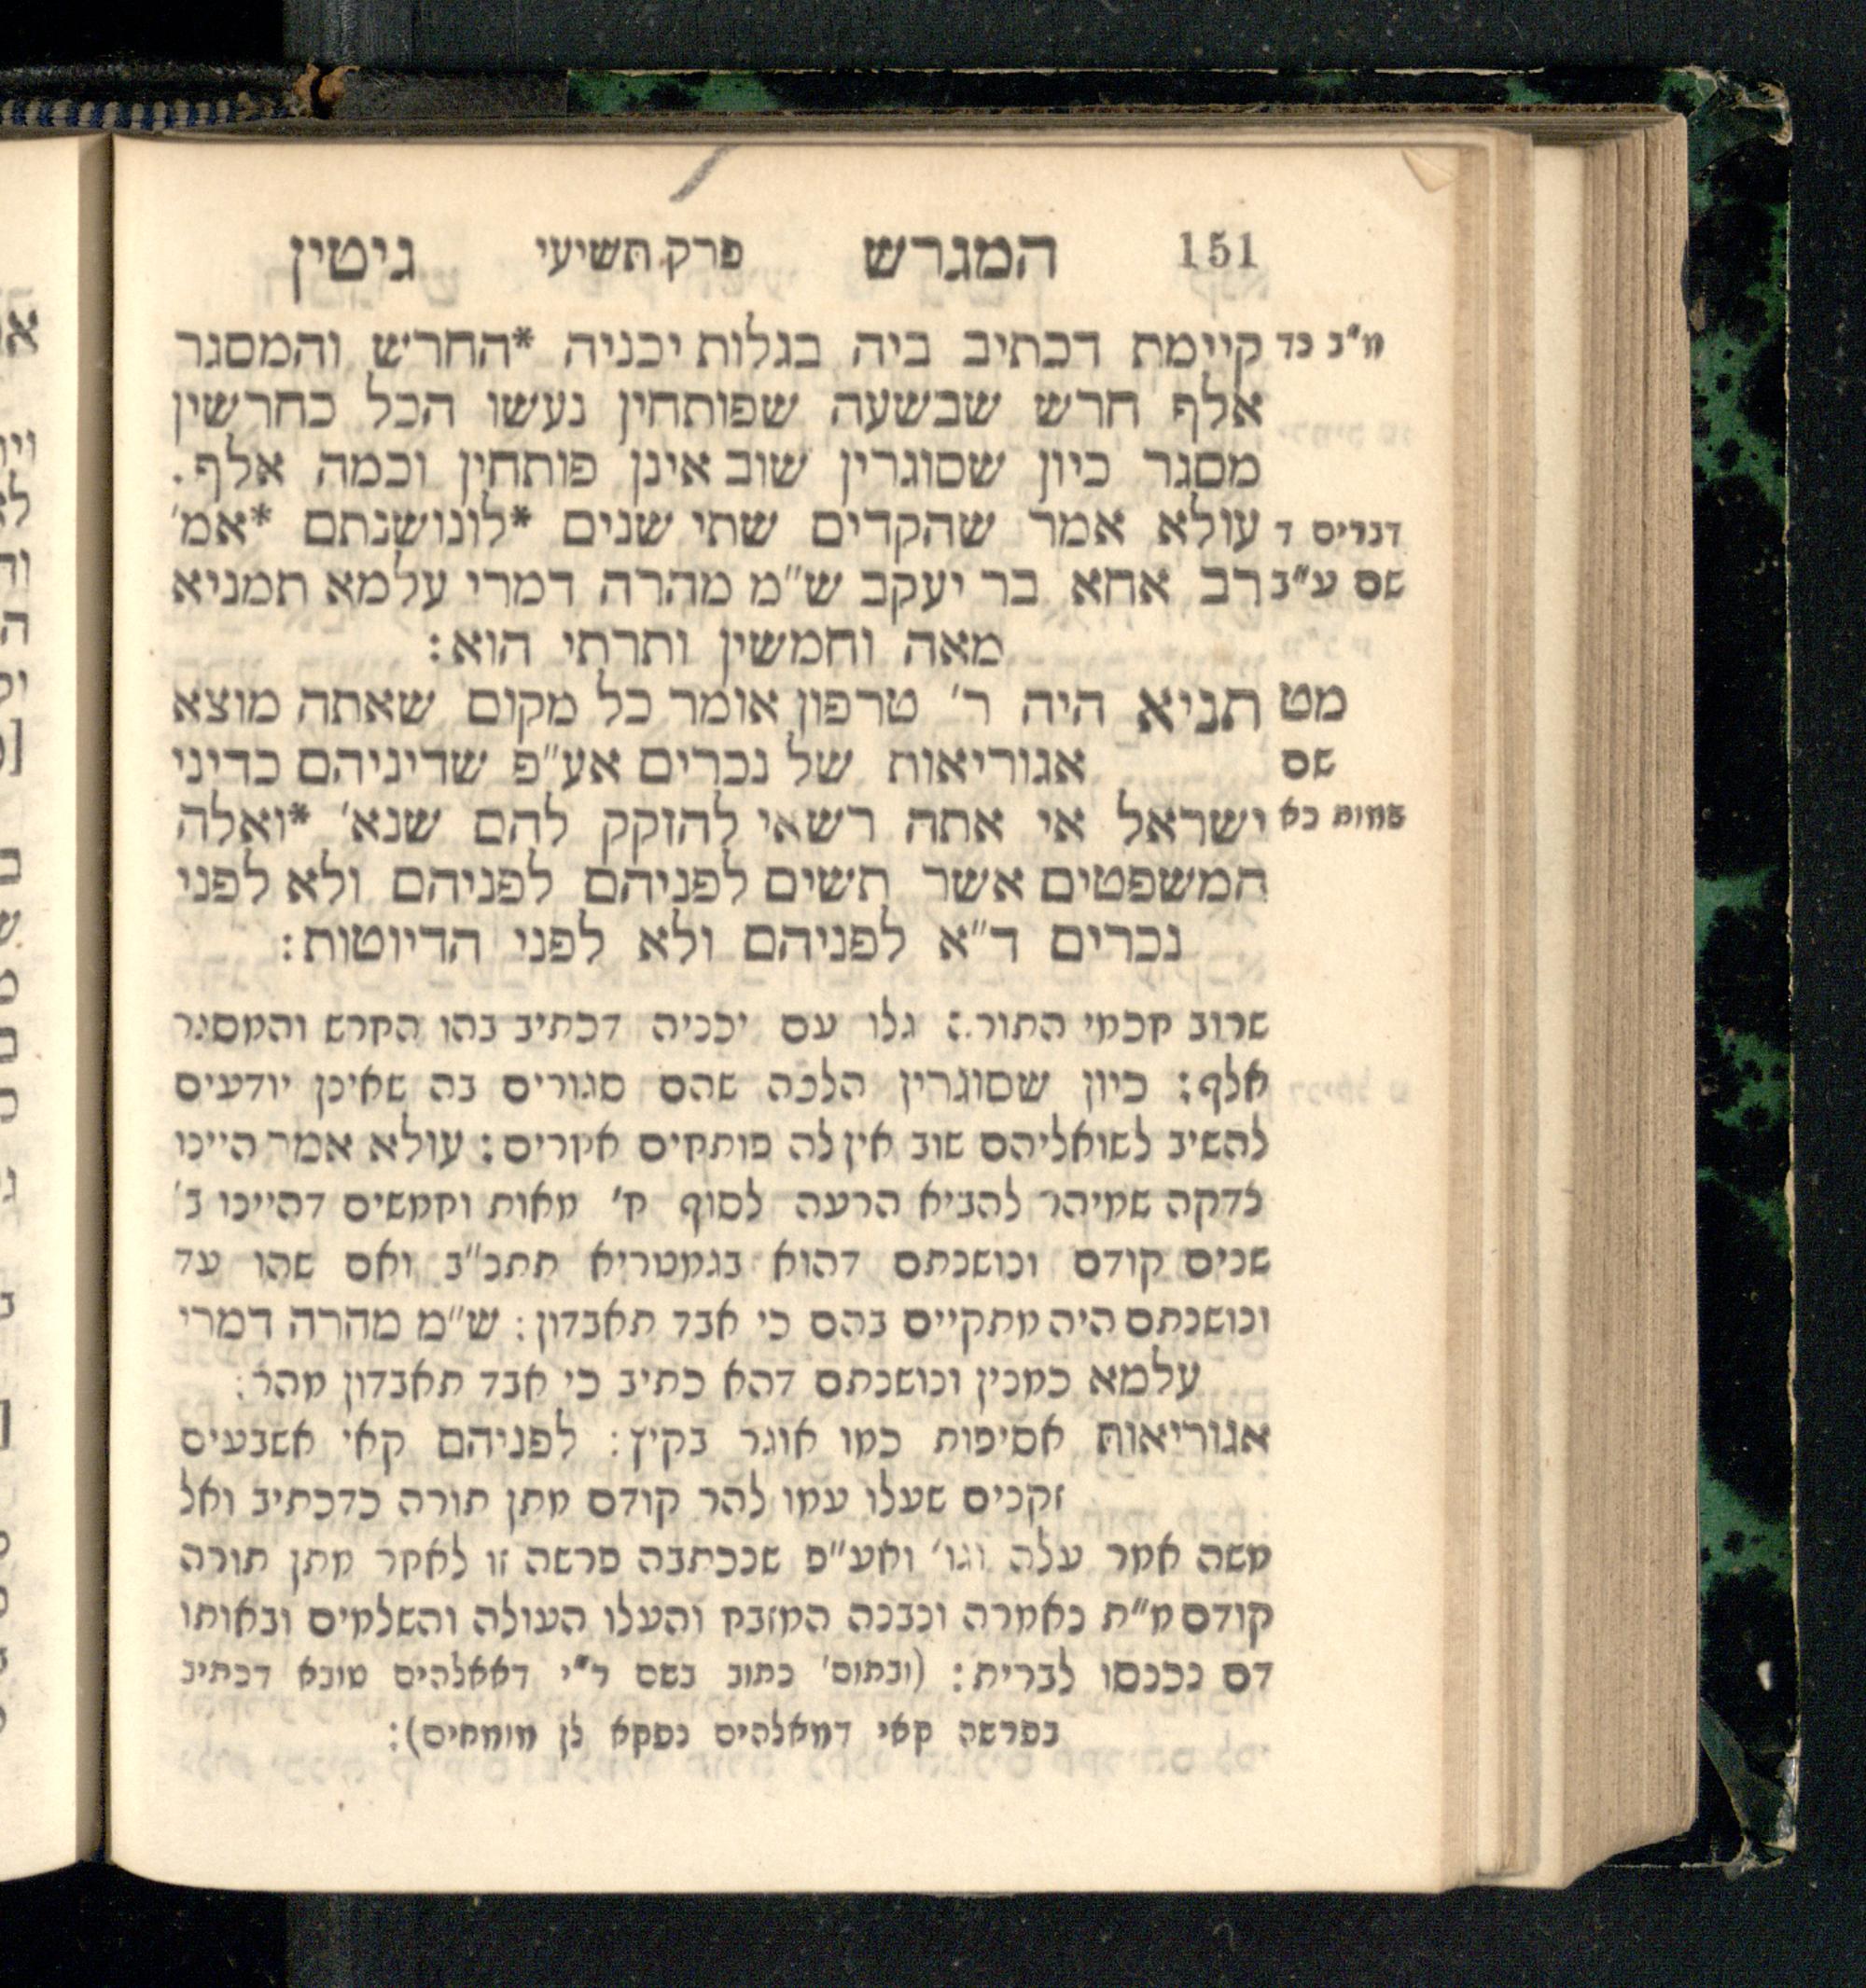 151 המגרש פרק תשיעי גיטין
מ"ב כד קיימת דכתיב ביה בגלות יכניה *החרש והמסגר
אלף חרש שבשעה שפותחין נעשו הכל כחרשין
מסגר כיון שסוגרין שוב אינן פותחין וכמה אלף.
דברים ד עולא אמר שהקדים שתי שנים *לונושנתם *אמ'
שם ע"ב רב אחא בר יעקב ש"מ מהרה דמרי עלמא תמניא
מאה וחמשין ותרתי הוא:
מט תניא היה ר' טרפון אומר כל מקום שאתה מוצא
שם אגוריאות של נכרים אע"פ שדיניהם כדיני
שמות כא ישראל אי אתה רשאי להזקק להם שנא' *ואלה
המשפטים אשר תשים לפניהם לפניהם ולא לפני
נכרים ד"א לפניהם ולא לפני הדיוטות:
שרוב חכמי התורה גלו עם יכניה דכתיב בהו החרש והמסגר
אלף: כיון שסוגרין הלכה שהם סגורים בה שאינן יודעים
להשיב לשואליהם שוב אין לה פותחים אחרים: עולא אמר היינו
צדקה שמיהר להביא הרעה לסוף ח' מאות וחמשים דהיינו ב'
שנים קודם ונושנתם דהוא בגמטריא תתנ"ב ואם שהו עד
ונושנתם היה מתקיים בהם כי אבד תאבדון: ש"מ מהרה דמרי
עלמא כמנין ונושנתם דהא כתיב כי אבד תאבדון מהר:
אגוריאות אסיפות כמו אוגר בקיץ: לפניהם קאי אשבעים
זקנים שעלו עמו להר קודם מתן תורה כדכתיב ואל
משה אמר עלה וגו' ואע"פ שנכתבה פרשה זו לאחר מתן תורה
קודם מ"ת נאמרה ונבנה המזבח והעלו העולה והשלמים ובאותו
דם נכנסו לברית: (ובתוס' כתוב בשם ר"י דאאלהים טובא דכתיב
בפרשה קאי דמאלהים נפקא לן מומחים):